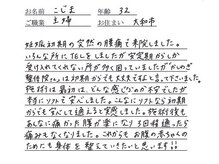 お名前 こじま 年齢 32
ご職業 主婦 お住まい 大和市
妊娠初期の突然の腰痛で来院しました。
いろんな所にTELをしましたが安定期からしか
受け入れてくれない所が多く困っていましたが「かしのき
整体院さん」は初期からでも大丈夫でTELし言って下さいました。
施術は最初は、どんな感じなのか不安でしたが
すごくソフトで安心しました。こんなにソフトなら初期
からでも安心して通えると感じました。施術後も
あんなに痛かった腰が楽になり3回程通ったら
痛みもなくなりました。これからもお腹の赤ちゃんの
ためにも身体を整していきたいと思います!!